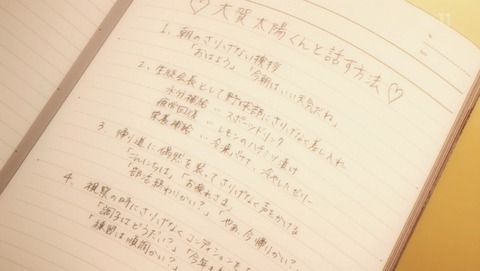 ♡大賀太陽くんと話す方法♡
1. 朝のさりげない挨拶
「おはよう」「今朝はいい天気だね」
2. 生徒会長として野球部にさりげなく差し入れ
水分補給…スポーツドリンク
疲労回復…レモンのハチミツ漬け
栄養補給…冷凍バナナ、冷やしたゼリー
3. 帰り道に偶然を装ってさりげなく声をかける
「こんにちは」「お疲れさま」「やあ、今帰りかい?」
「部活終わりかい?」
4. 視察の時にさりげなくコンディションを
「調子はどうだい?」「今年も
「練習は順調かい?」